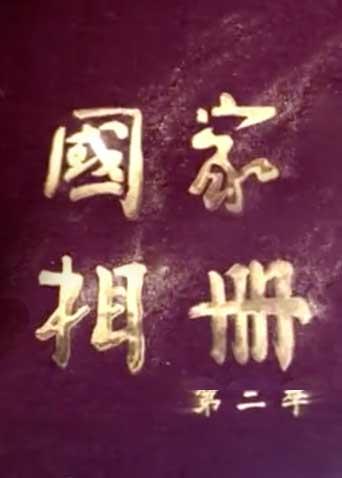 國家
相冊
第二季